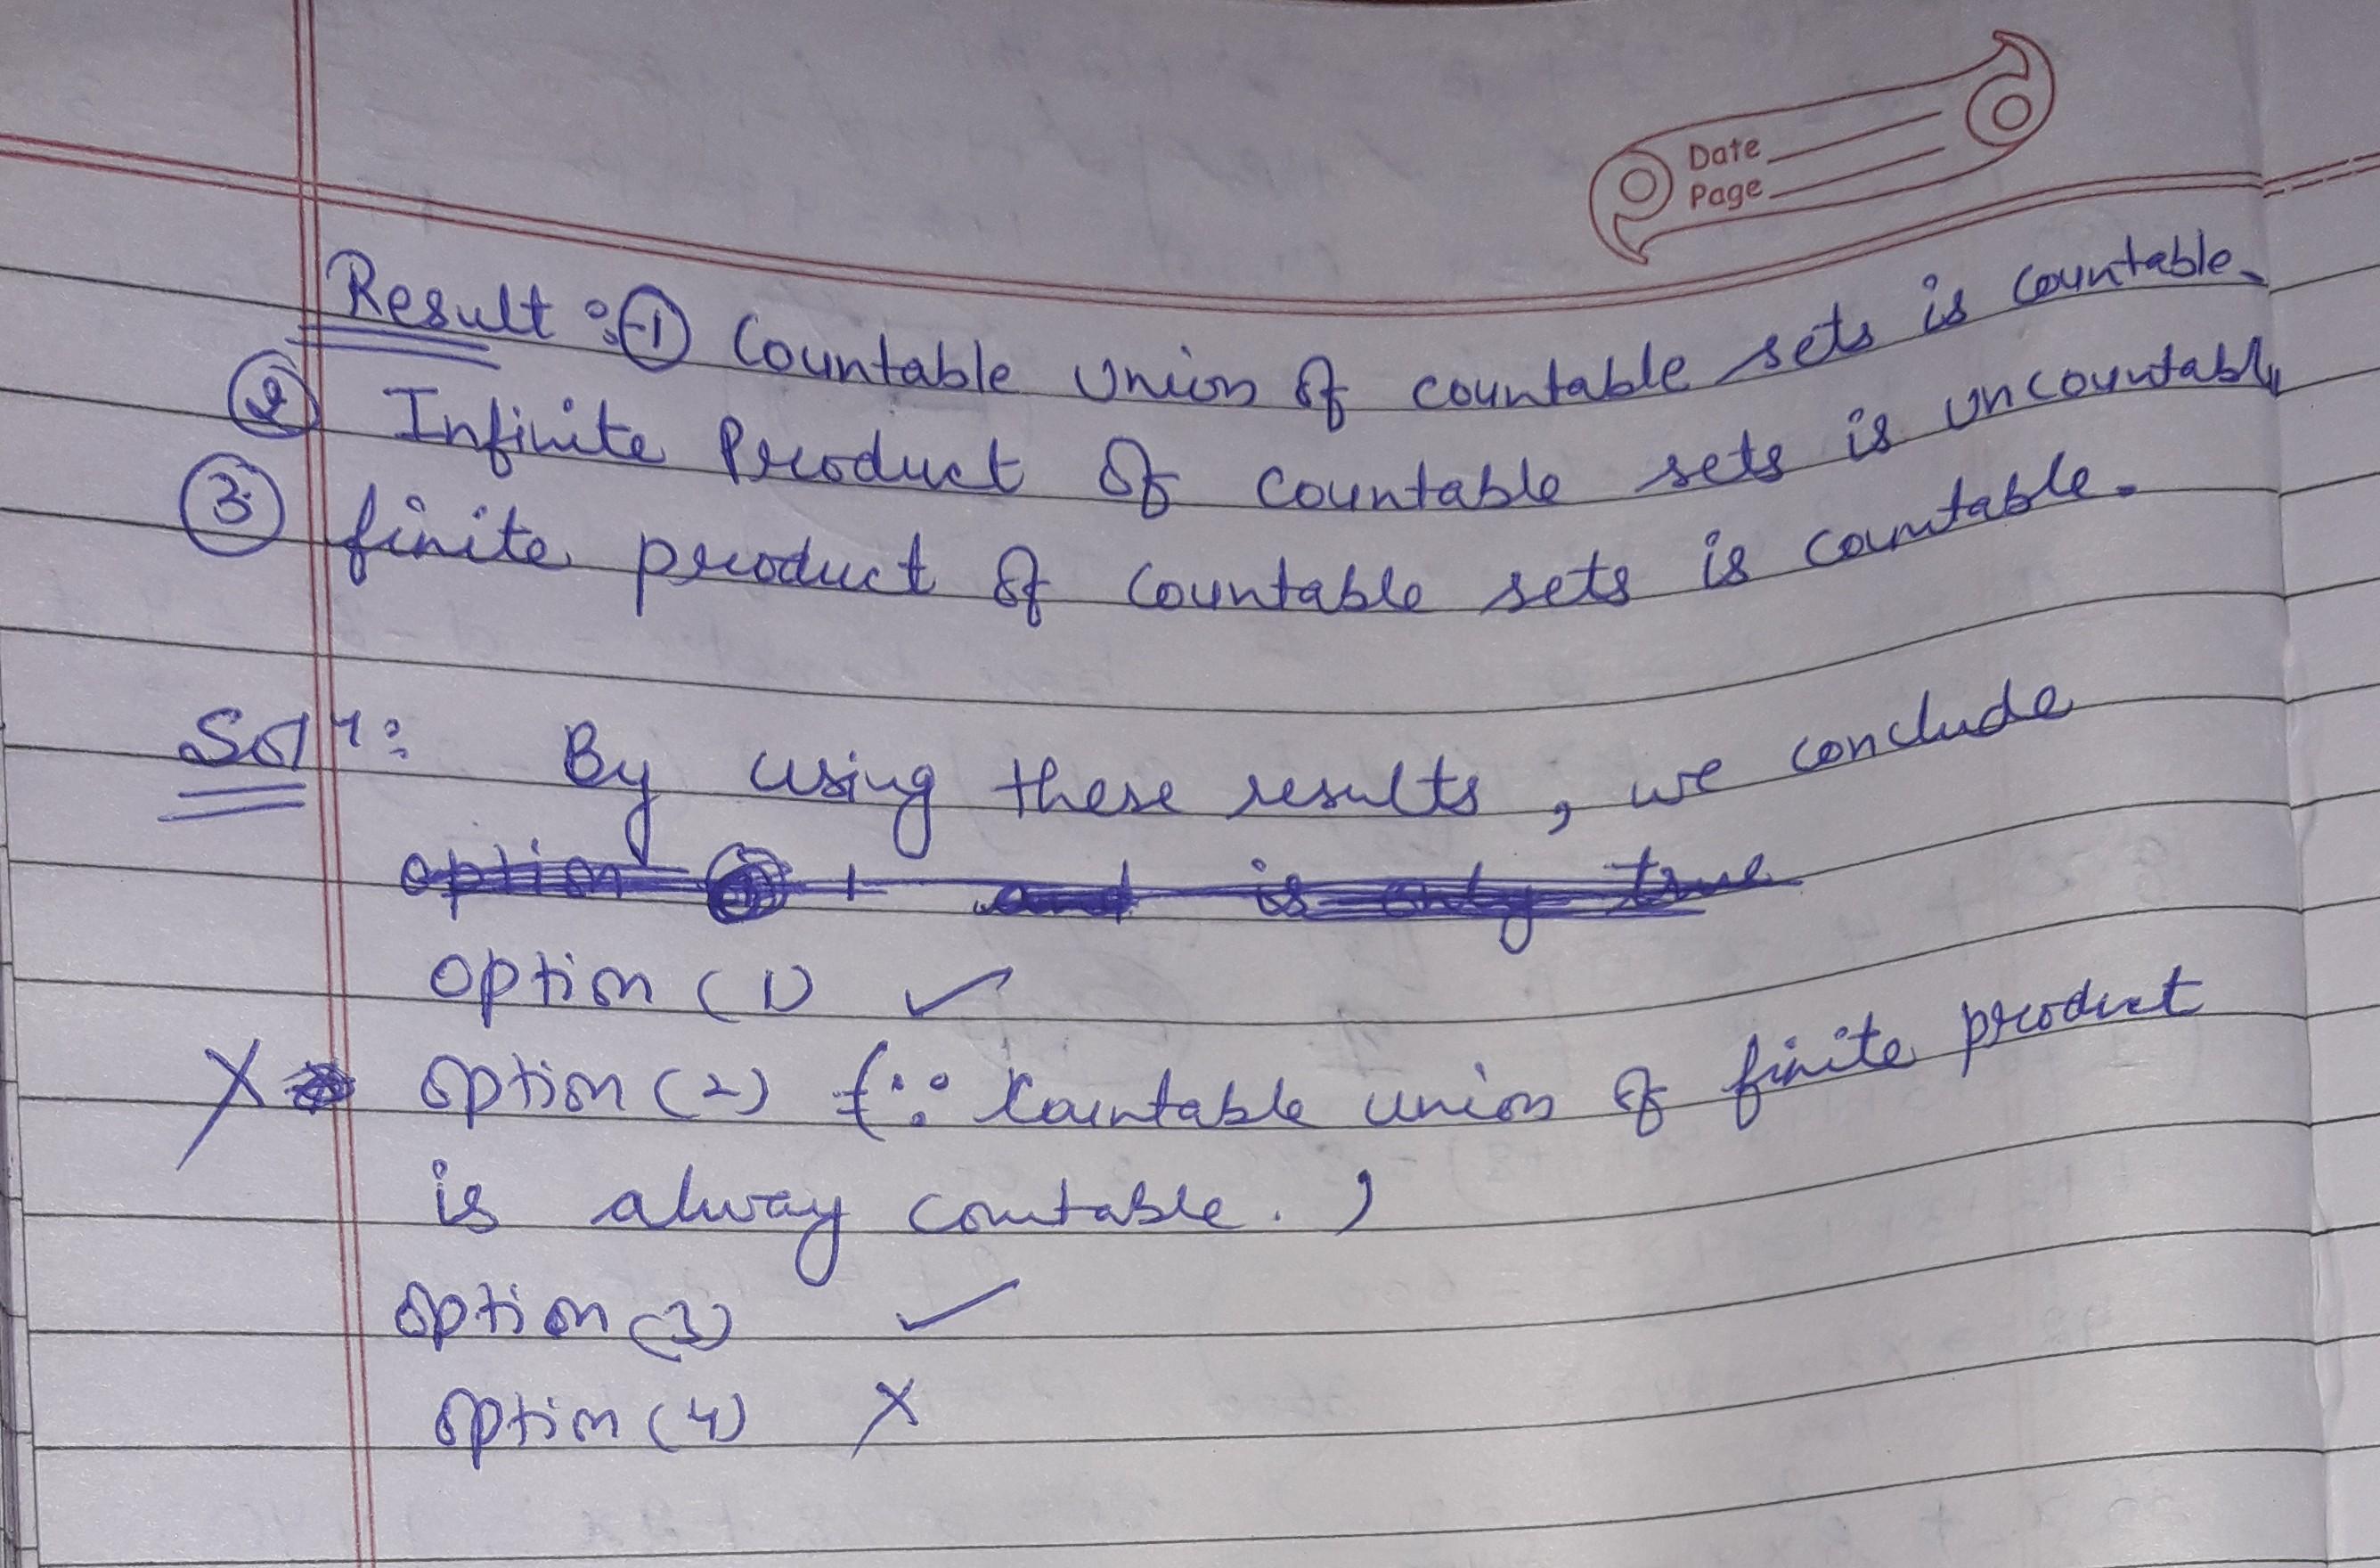 Date
Page
Result :- ① Countable Union of countable sets is countable.
② Infinite Product of countable sets is uncountable
③ finite product of countable sets is countable.
Solⁿ: By using these results, we conclude
option is only true
option (1) ✓
X option (2) (∵ Countable union of finite product
is alway countable.)
option (3) ✓
option (4) X